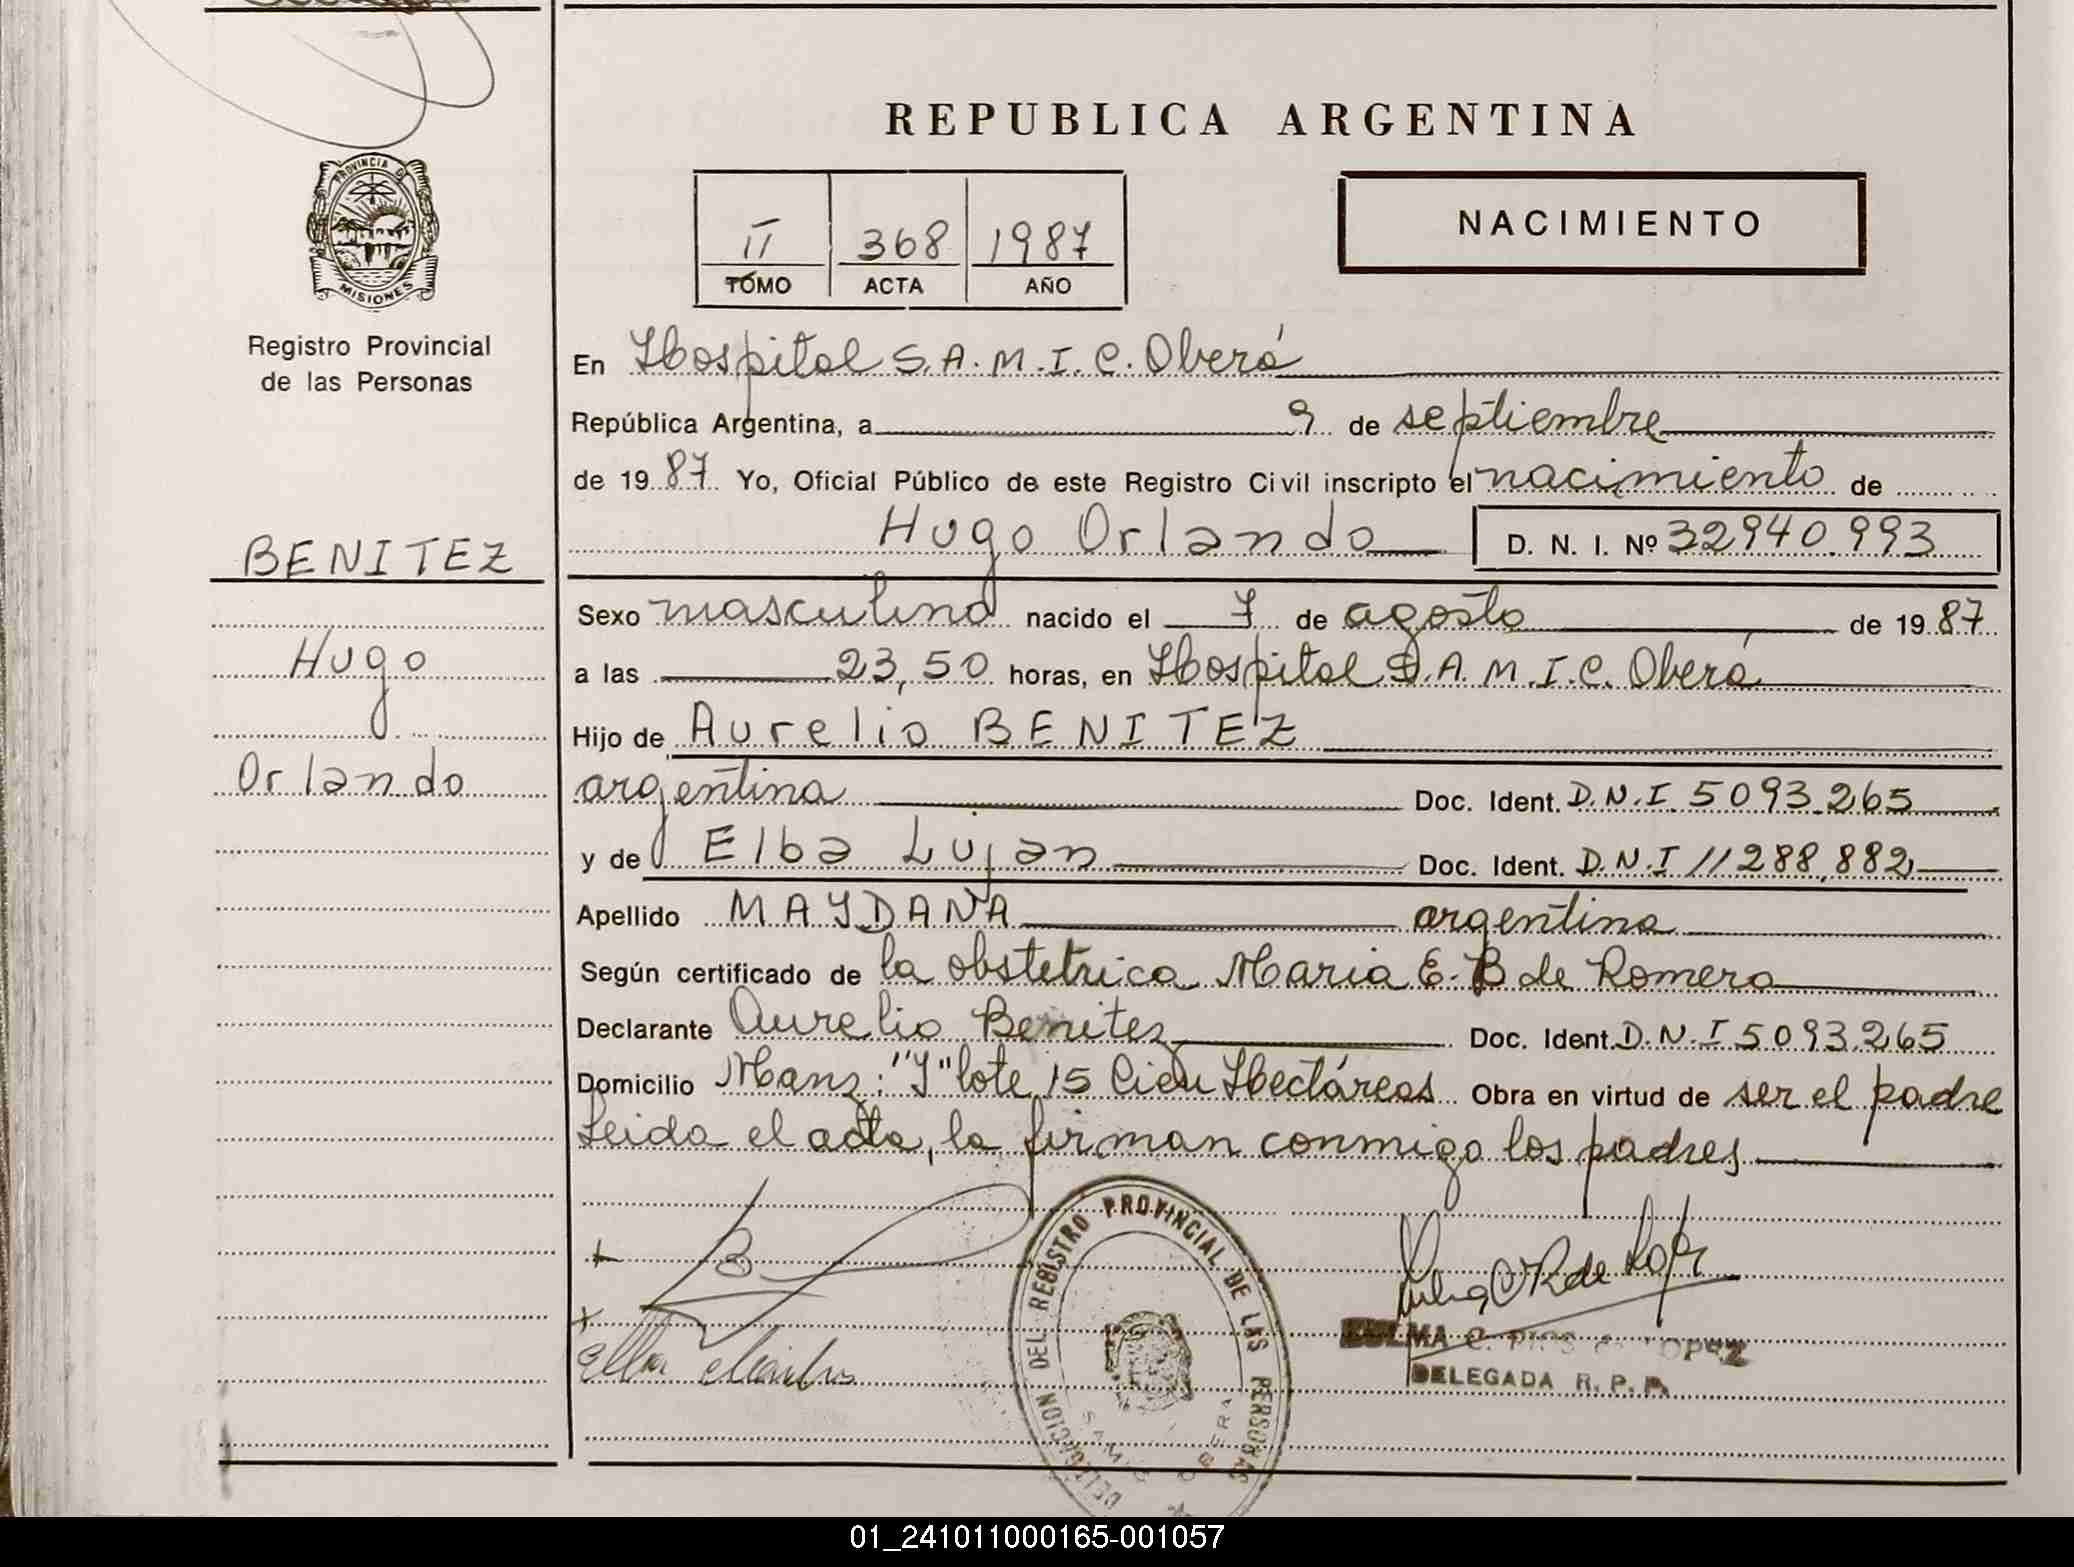 REPUBLICA ARGENTINA
PROVINCIA D
MISIONES
Registro Provincial
de las Personas
II 368 1987
TOMO ACTA AÑO
NACIMIENTO
En Hospital S.A.M.I.C. Oberá
República Argentina, a 9 de septiembre
de 1987 Yo, Oficial Público de este Registro Civil inscripto el nacimiento de
Hugo Orlando D. N. I. Nº 32940.993
BENITEZ
Hugo
Orlando
Sexo masculino nacido el 7 de agosto de 1987
a las 23,50 horas, en Hospital S.A.M.I.C. Oberá
Hijo de Aurelio BENITEZ
argentina Doc. Ident. D.N.I. 5093.265
y de Elba Lujan Doc. Ident. D.N.I 11288.882
Apellido MAYDANA argentina
Según certificado de la obstetrica Maria E. B de Romero
Declarante Aurelio Benitez Doc. Ident. D.N.I 5093.265
Domicilio Manz: "J" lote 15 Cien Hectáreas Obra en virtud de ser el padre
Leida el acta, la firman conmigo los padres
DELEGACION DEL REGISTRO PROVINCIAL DE LAS PERSONAS
SAMIC OBERA
C. LOPEZ
DELEGADA R. P. P.
01_241011000165-001057